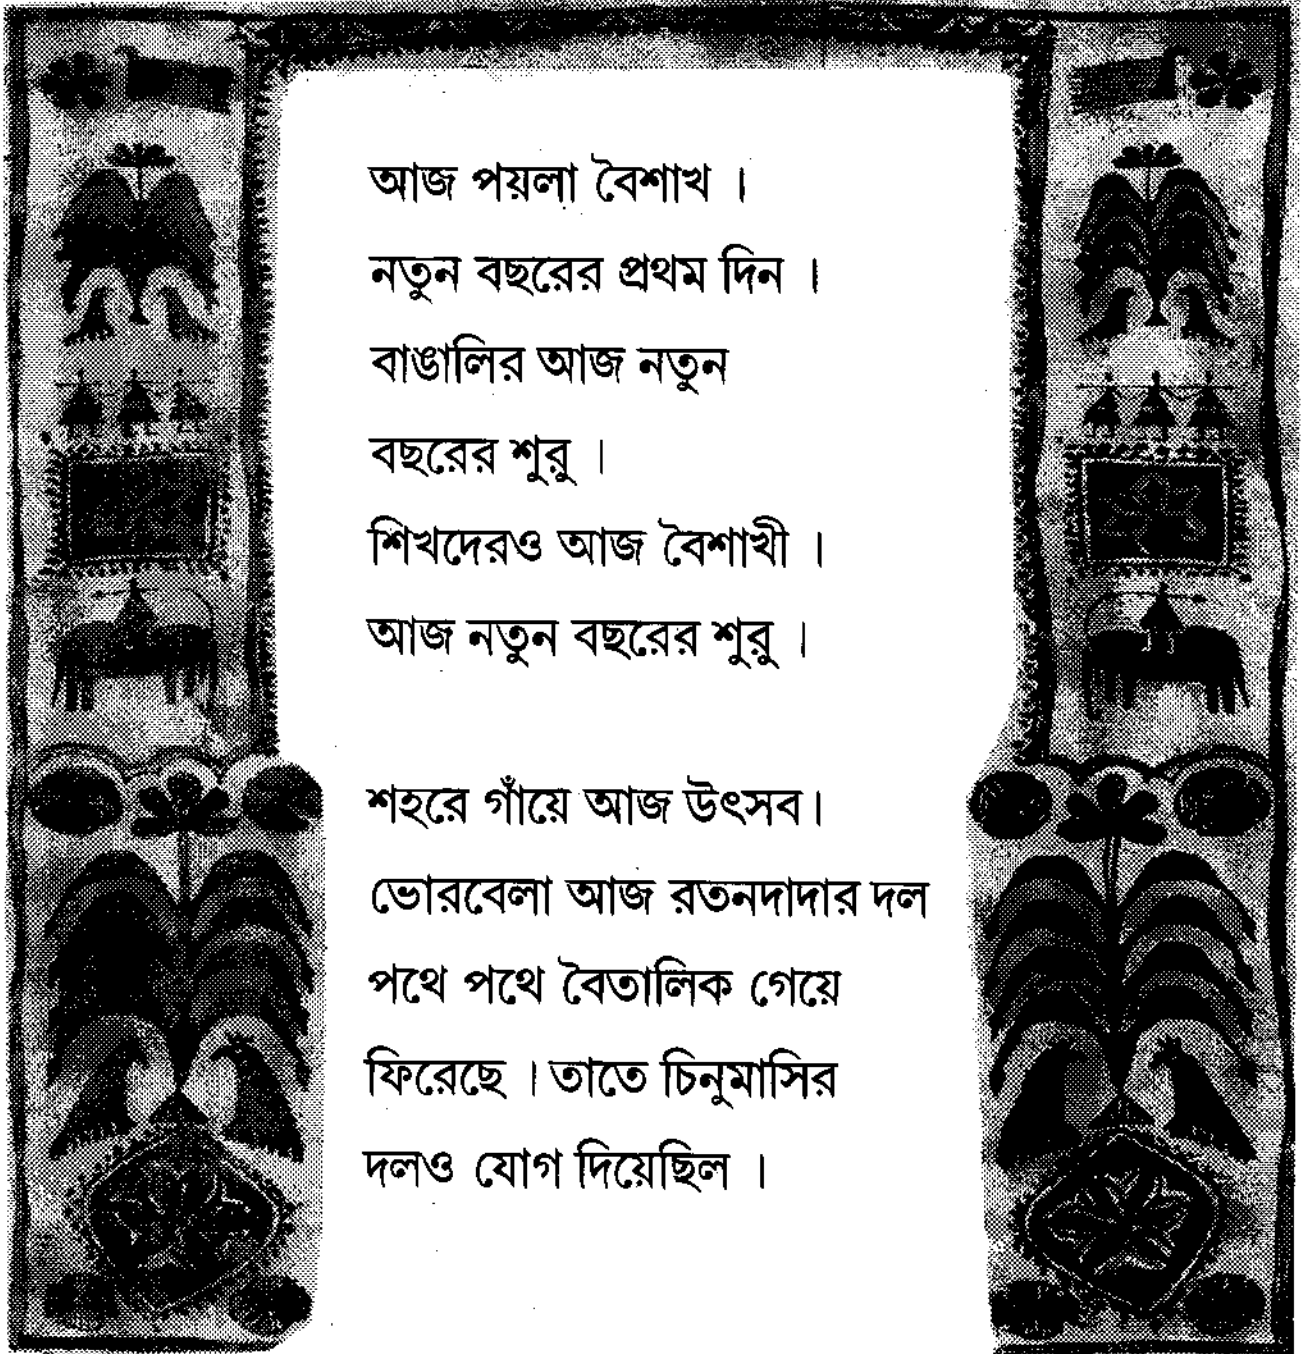 আজ পয়লা বৈশাখ ।
নতুন বছরের প্রথম দিন ।
বাঙালির আজ নতুন
বছরের শুরু ।
শিখদেরও আজ বৈশাখী ।
আজ নতুন বছরের শুরু ।
শহরে গাঁয়ে আজ উৎসব।
ভোরবেলা আজ রতনদাদার দল
পথে পথে বৈতালিক গেয়ে
ফিরেছে । তাতে চিনুমাসির
দলও যোগ দিয়েছিল ।